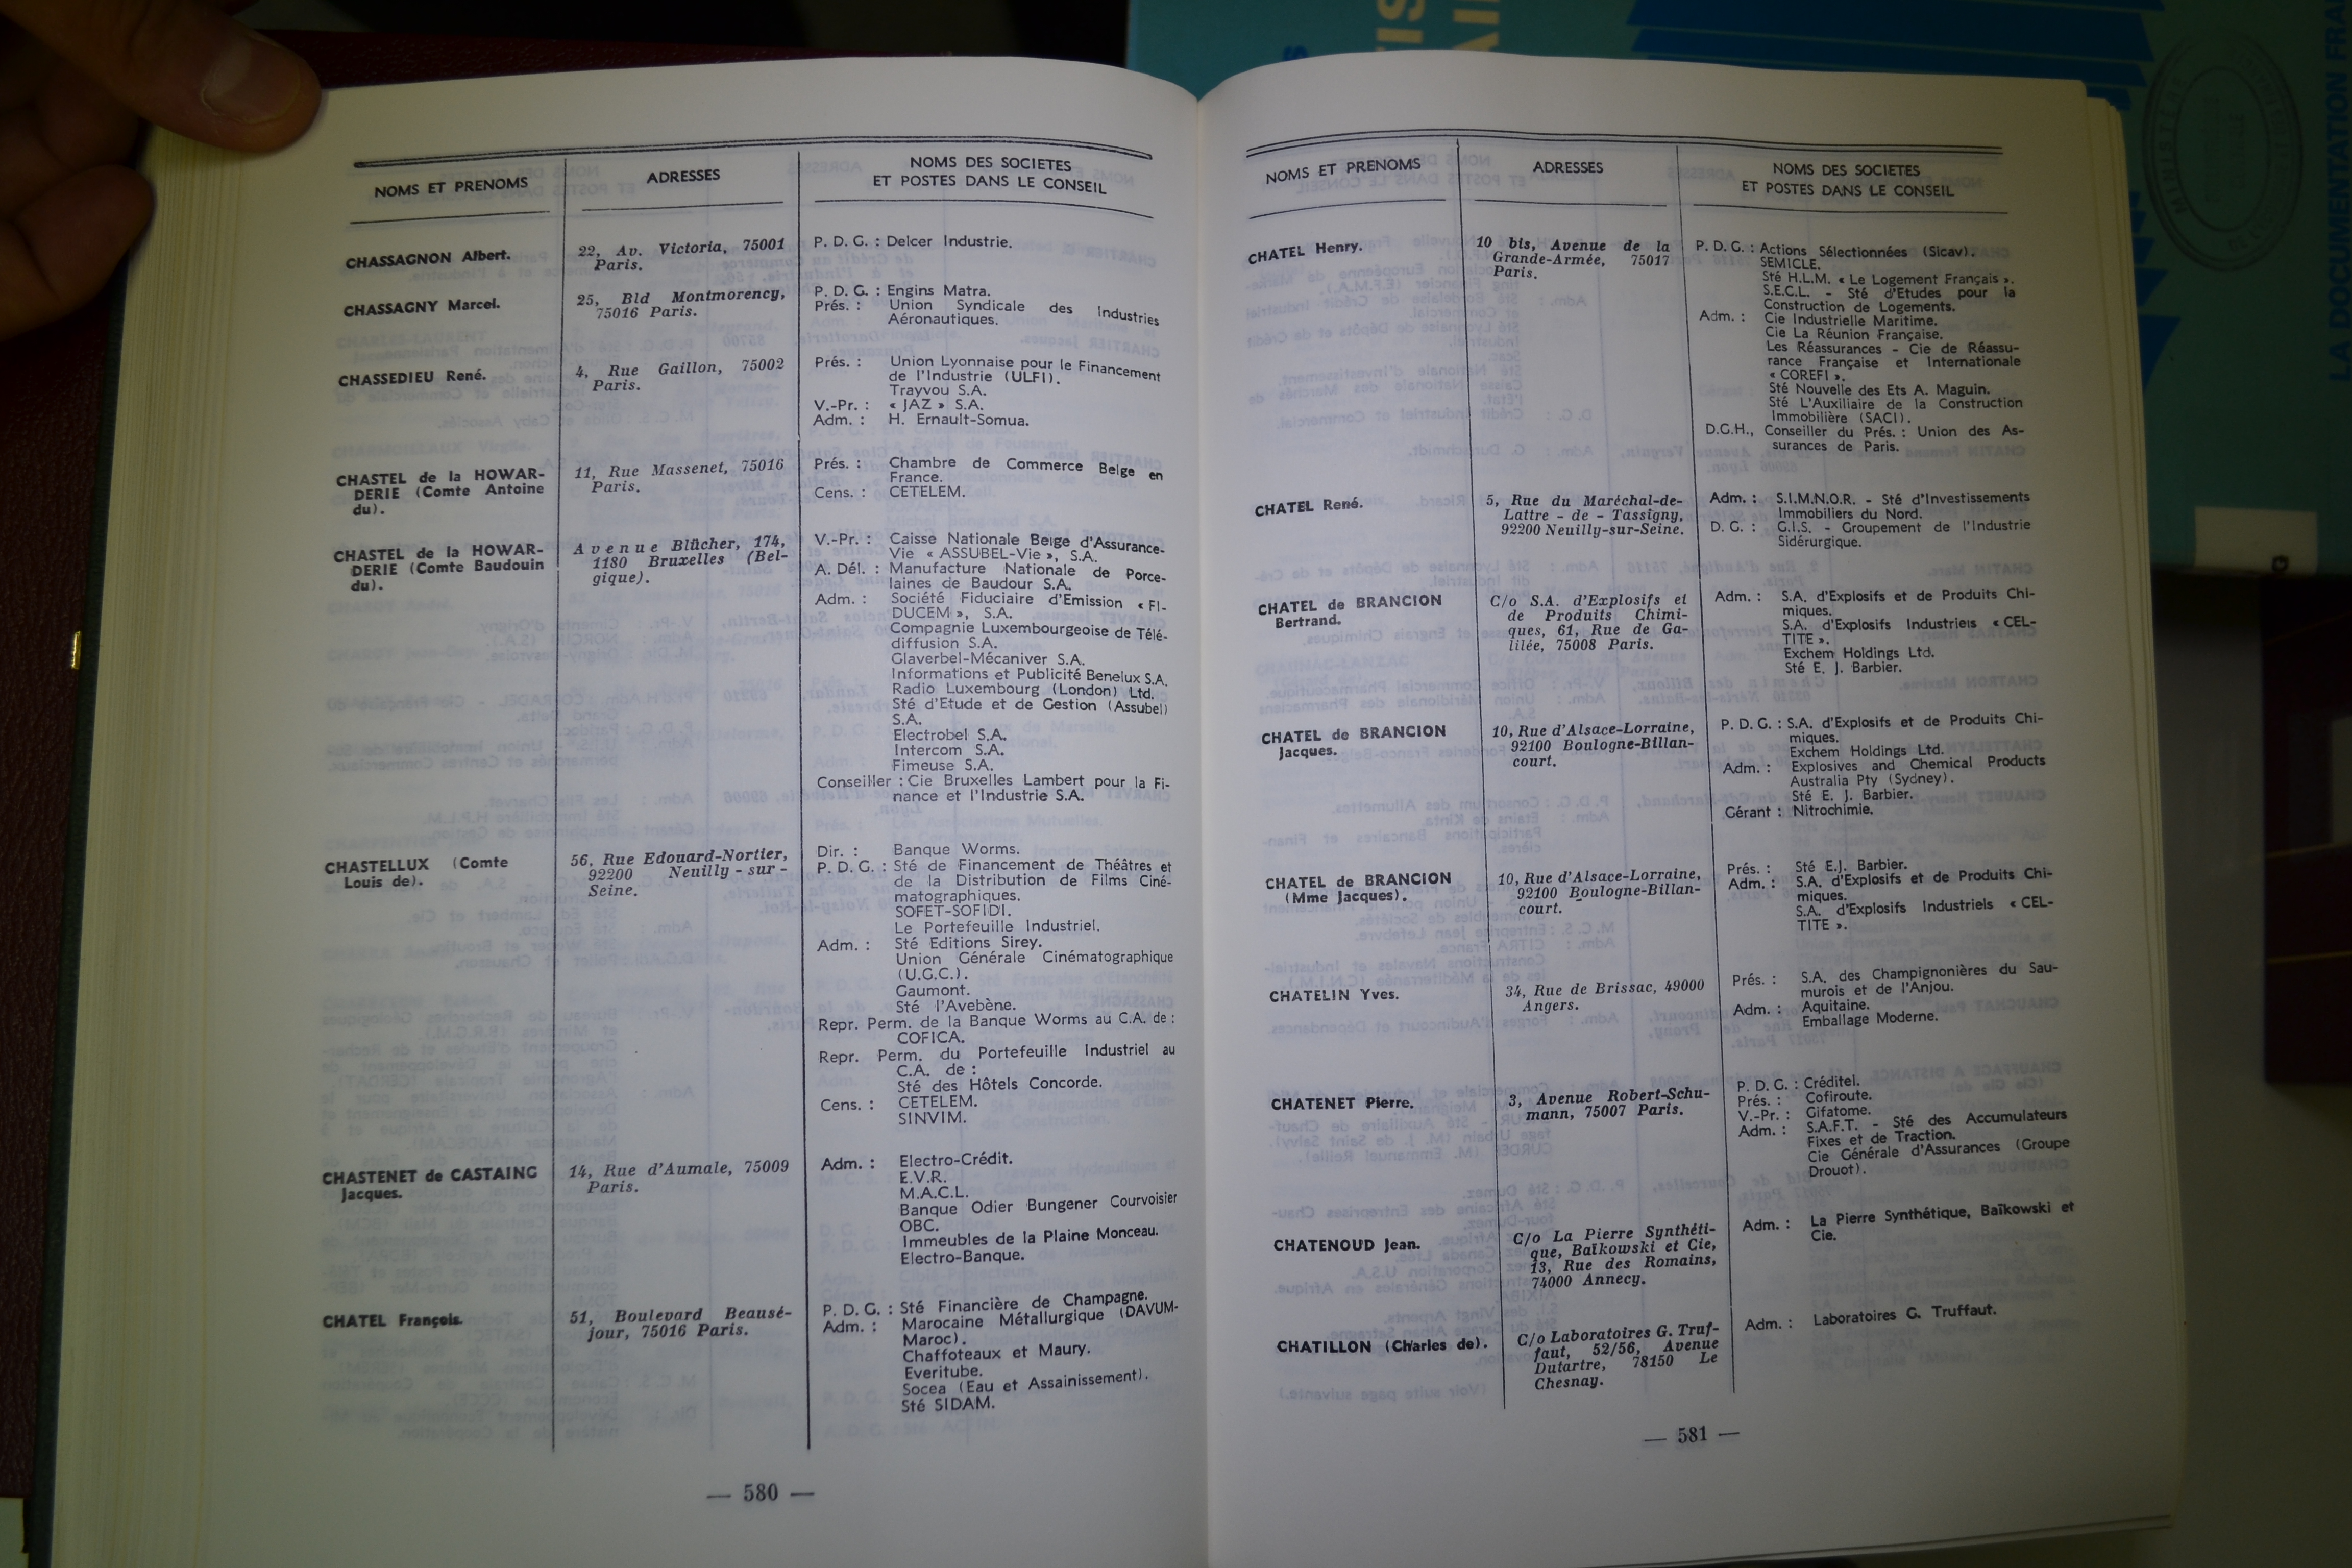 NOMS ET PRENOMS
ADRESSES
NOMS DES SOCIETES
ET POSTES DANS LE CONSEIL
CHASSAGNON Albert.
22, Av. Victoria, 75001
Paris.
P. D. G. : Delcer Industrie.
CHASSAGNY Marcel.
25, Bld Montmorency,
75016 Paris.
P. D. G. : Engins Matra.
Prés. : Union Syndicale des Industries
Aéronautiques.
CHASSEDIEU René.
4, Rue Gaillon, 75002
Paris.
Prés. : Union Lyonnaise pour le Financement
de l'Industrie (ULFI).
Trayvou S.A.
V.-Pr. : « JAZ » S.A.
Adm. : H. Ernault-Somua.
CHASTEL de la HOWAR-
DERIE (Comte Antoine
du).
11, Rue Massenet, 75016
Paris.
Prés. : Chambre de Commerce Belge en
France.
Cens. : CETELEM.
CHASTEL de la HOWAR-
DERIE (Comte Baudouin
du).
Avenue Blücher, 174,
1180 Bruxelles (Bel-
gique).
V.-Pr. : Caisse Nationale Belge d'Assurance-
Vie « ASSUBEL-Vie », S.A.
A. Dél. : Manufacture Nationale de Porce-
laines de Baudour S.A.
Adm. : Société Fiduciaire d'Emission « FI-
DUCEM », S.A.
Compagnie Luxembourgeoise de Télé-
diffusion S.A.
Glaverbel-Mécaniver S.A.
Informations et Publicité Benelux S.A.
Radio Luxembourg (London) Ltd.
Sté d'Etude et de Gestion (Assubel)
S.A.
Electrobel S.A.
Intercom S.A.
Fimeuse S.A.
Conseiller : Cie Bruxelles Lambert pour la Fi-
nance et l'Industrie S.A.
CHASTELLUX (Comte
Louis de).
56, Rue Edouard-Nortier,
92200 Neuilly - sur -
Seine.
Dir. : Banque Worms.
P. D. G. : Sté de Financement de Théâtres et
de la Distribution de Films Ciné-
matographiques.
SOFET-SOFIDI.
Le Portefeuille Industriel.
Adm. : Sté Editions Sirey.
Union Générale Cinématographique
(U.G.C.).
Gaumont.
Sté l'Avebène.
Repr. Perm. de la Banque Worms au C.A. de :
COFICA.
Repr. Perm. du Portefeuille Industriel au
C.A. de :
Sté des Hôtels Concorde.
Cens. : CETELEM.
SINVIM.
CHASTENET de CASTAING
Jacques.
14, Rue d'Aumale, 75009
Paris.
Adm. : Electro-Crédit.
E.V.R.
M.A.C.L.
Banque Odier Bungener Courvoisier
OBC.
Immeubles de la Plaine Monceau.
Electro-Banque.
CHATEL François.
51, Boulevard Beausé-
jour, 75016 Paris.
P. D. G. : Sté Financière de Champagne.
Adm. : Marocaine Métallurgique (DAVUM-
Maroc).
Chaffoteaux et Maury.
Everitube.
Socea (Eau et Assainissement).
Sté SIDAM.
— 580 —
NOMS ET PRENOMS
ADRESSES
NOMS DES SOCIETES
ET POSTES DANS LE CONSEIL
CHATEL Henry.
10 bis, Avenue de la
Grande-Armée, 75017
Paris.
P. D. G. : Actions Sélectionnées (Sicav).
SEMICLE.
Sté H.L.M. « Le Logement Français ».
S.E.C.L. - Sté d'Etudes pour la
Construction de Logements.
Adm. : Cie Industrielle Maritime.
Cie La Réunion Française.
Les Réassurances - Cie de Réassu-
rance Française et Internationale
« COREFI ».
Sté Nouvelle des Ets A. Maguin.
Sté L'Auxiliaire de la Construction
Immobilière (SACI).
D.G.H., Conseiller du Prés. : Union des As-
surances de Paris.
CHATEL René.
5, Rue du Maréchal-de-
Lattre - de - Tassigny,
92200 Neuilly-sur-Seine.
Adm. : S.I.M.N.O.R. - Sté d'Investissements
Immobiliers du Nord.
D. G. : G.I.S. - Groupement de l'Industrie
Sidérurgique.
CHATEL de BRANCION
Bertrand.
C/o S.A. d'Explosifs et
de Produits Chimi-
ques, 61, Rue de Ga-
lilée, 75008 Paris.
Adm. : S.A. d'Explosifs et de Produits Chi-
miques.
S.A. d'Explosifs Industriels « CEL-
TITE ».
Exchem Holdings Ltd.
Sté E. J. Barbier.
CHATEL de BRANCION
Jacques.
10, Rue d'Alsace-Lorraine,
92100 Boulogne-Billan-
court.
P. D. G. : S.A. d'Explosifs et de Produits Chi-
miques.
Exchem Holdings Ltd.
Adm. : Explosives and Chemical Products
Australia Pty (Sydney).
Sté E. J. Barbier.
Gérant : Nitrochimie.
CHATEL de BRANCION
(Mme Jacques).
10, Rue d'Alsace-Lorraine,
92100 Boulogne-Billan-
court.
Prés. : Sté E.J. Barbier.
Adm. : S.A. d'Explosifs et de Produits Chi-
miques.
S.A. d'Explosifs Industriels « CEL-
TITE ».
CHATELIN Yves.
34, Rue de Brissac, 49000
Angers.
Prés. : S.A. des Champignonières du Sau-
murois et de l'Anjou.
Adm. : Aquitaine.
Emballage Moderne.
CHATENET Pierre.
3, Avenue Robert-Schu-
mann, 75007 Paris.
P. D. G. : Créditel.
Prés. : Cofiroute.
V.-Pr. : Gifatome.
Adm. : S.A.F.T. - Sté des Accumulateurs
Fixes et de Traction.
Cie Générale d'Assurances (Groupe
Drouot).
CHATENOUD Jean.
C/o La Pierre Synthéti-
que, Baïkowski et Cie,
13, Rue des Romains,
74000 Annecy.
Adm. : La Pierre Synthétique, Baïkowski et
Cie.
CHATILLON (Charles de).
C/o Laboratoires G. Truf-
faut, 52/56, Avenue
Dutartre, 78150 Le
Chesnay.
Adm. : Laboratoires G. Truffaut.
— 581 —
LA DOCUMENTATION FRAI
MINISTÈRE